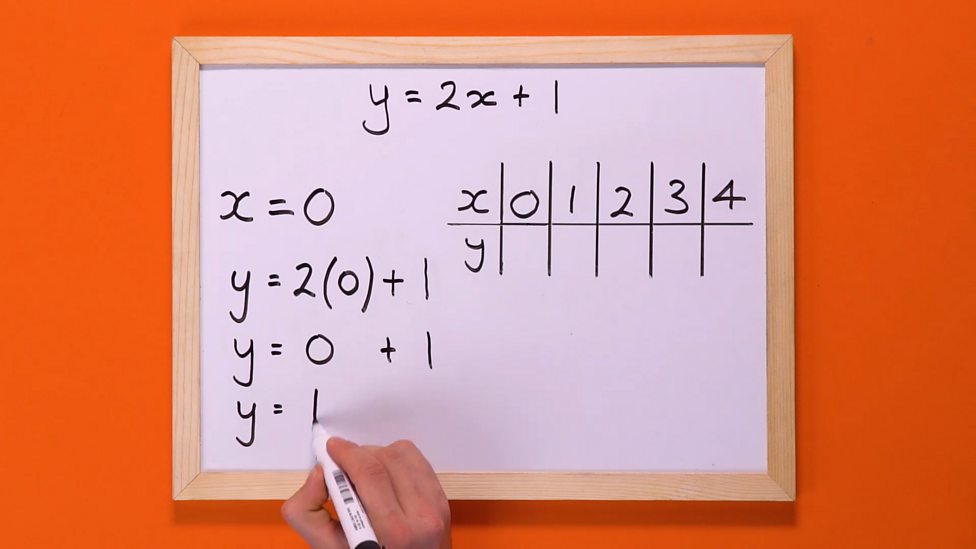 y = 2x + 1
x = 0
y = 2(0) + 1
y = 0 + 1
y = 1
x 0 1 2 3 4
y